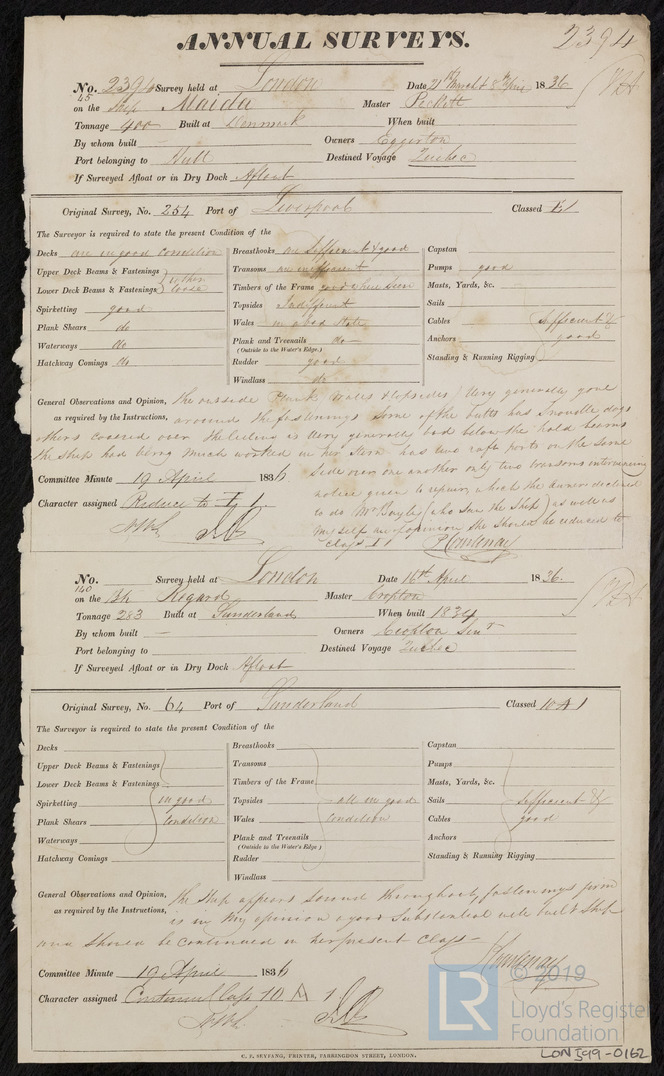 ANNUAL SURVEYS.
2394
No. 2394 Survey held at London Date 21st March & 8th April 1836
45
on the Ship Maida Master Peckett
Tonnage 400 Built at Denmark When built
By whom built — Owners Eggerton
Port belonging to Hull Destined Voyage Quebec
If Surveyed Afloat or in Dry Dock Afloat
Original Survey, No. 254 Port of Liverpool Classed E1
The Surveyor is required to state the present Condition of the
Decks are in good condition Breasthooks are sufficient & good Capstan
Upper Deck Beams & Fastenings } rather Transoms are Pumps good
Lower Deck Beams & Fastenings } loose Timbers of the Frame good where seen Masts, Yards, &c.
Spirketting good Topsides Indifferent Sails
Plank Shears do Wales in a good state Cables Sufficient &
Waterways do Plank and Treenails do Anchors good
(Outside to the Water's Edge.)
Hatchway Comings do Rudder good Standing & Running Rigging
Windlass do
General Observations and Opinion, the outside Plank Wales & topsides Very generally gone
as required by the Instructions, around the fastenings some of the butts has dogs
others coased over the Ceiling is Very generally bad below the hold beams
the Ship had being much worked in her Stern has two raft ports on the same
Side over one another only two transoms intervening
Committee Minute 19 April 1836.
notice given to repair, which the owner declined
Character assigned Reduce to I 1.
to do Mr Bayley (who saw the Ship) as well as
my self are of opinion she should be reduced to
Class I 1 P Courtenay
No. Survey held at London Date 16th April 1836.
140
on the Sh Regard Master Cropton
Tonnage 283 Built at Sunderland When built 1834
By whom built — Owners Cropton Senr
Port belonging to Destined Voyage Quebec
If Surveyed Afloat or in Dry Dock Afloat
Original Survey, No. 64 Port of Sunderland Classed 10 A 1
The Surveyor is required to state the present Condition of the
Decks Breasthooks Capstan
Upper Deck Beams & Fastenings Transoms Pumps
Lower Deck Beams & Fastenings Timbers of the Frame Masts, Yards, &c.
Spirketting in good Topsides all in good Sails Sufficient &
Plank Shears Condition Wales Condition Cables good
Waterways Plank and Treenails Anchors
(Outside to the Water's Edge)
Hatchway Comings Rudder Standing & Running Rigging
Windlass
General Observations and Opinion, the Ship appears sound throughout, fastenings firm
as required by the Instructions, is in My opinion a good Substantial well built Ship
and should be continued in her present Class —
P Courtenay
Committee Minute 19 April 1836
Character assigned Continued Class 10 A 1
© 2019
LR Lloyd's Register
Foundation
C. F. SEYFANG, PRINTER, FARRINGDON STREET, LONDON.
LON599-0162